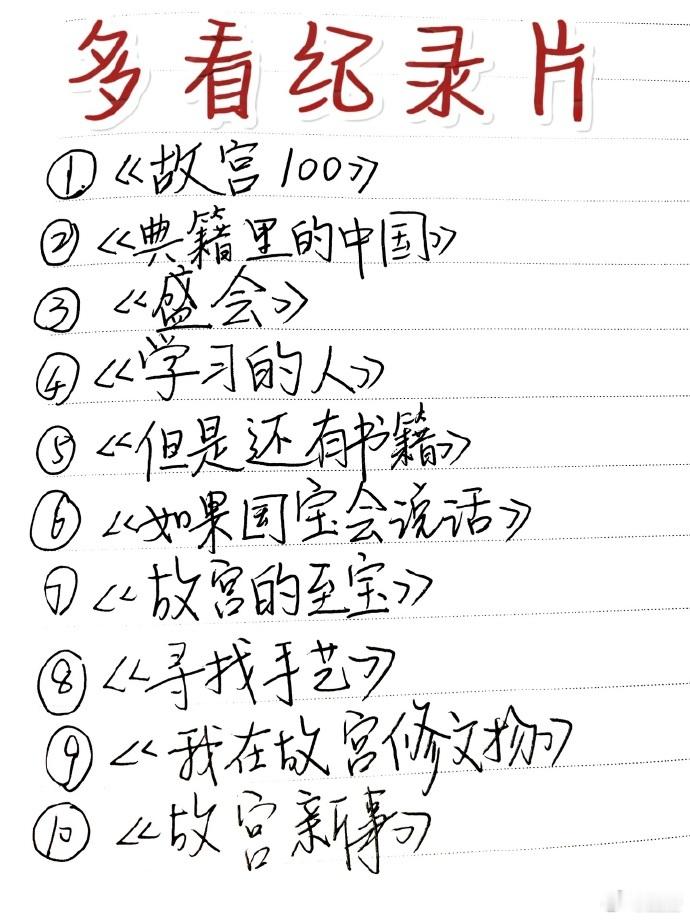 多看纪录片
①《故宫100》
②《典籍里的中国》
③《盛会》
④《学习的人》
⑤《但是还有书籍》
⑥《如果国宝会说话》
⑦《故宫的至宝》
⑧《寻找手艺》
⑨《我在故宫修文物》
⑩《故宫新事》